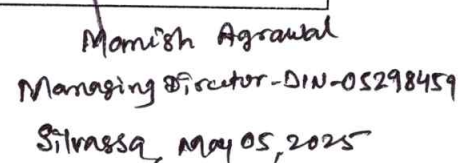 Momish Agrawal
Managing Director-DIN-05298459
Silvassa, May 05, 2025